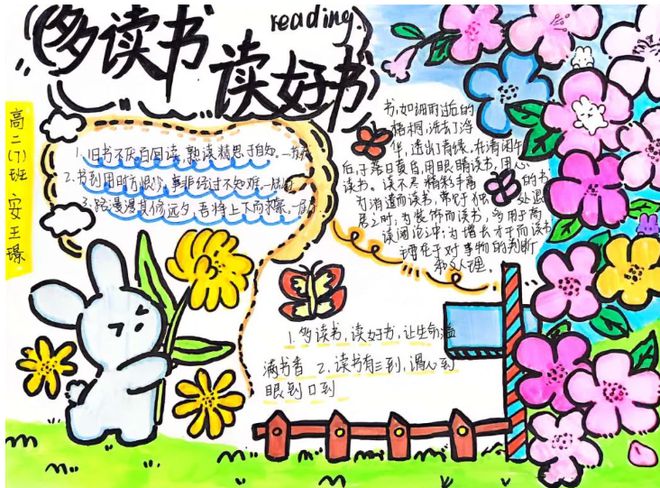 多读书
reading
读好书
高二(7)班 安王璟
1.旧书不厌百回读,熟读精思子自知.
2.书到用时方恨少,事非经过不知难.
3.路漫漫其修远兮,吾将上下而求索.
书,如细雨过后的
梧桐,洗去了浮
华,透出青绿.在清闲午
后,于落日黄昏,用眼睛读书,用心
读书。读不尽精彩手高 的书
为消遣而读书,常见于独处退
居之时;为装饰而读书,多用于高
谈阔论之中;为增长才干而读书
主要在于对事物的判断
和处理。
1.多读书,读好书,让生命溢
满书香 2.读书有三到,谓心到
眼到口到